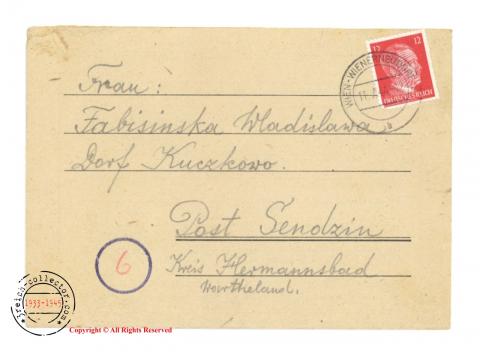 Frau:
Fabisinska Wladislawa
Dorf Kuczkowo.
Post Sendzin
Kreis Hermannsbad
Wartheland.
6
12 12
WIEN-WIENER
11.
b
3reich-collector.com
1933-1945
Copyright © All Rights Reserved